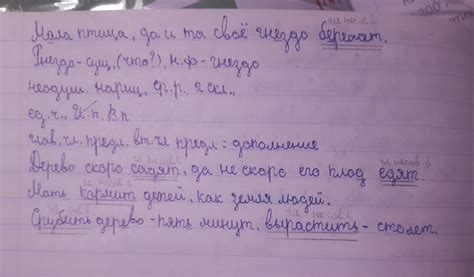 гл несов.в
Мала птица, да и та своё гнездо бережёт.
Гнездо-сущ, (что?), н.ф-гнездо
неодуш. нариц, Ср.р., 2 скл.,
ед.ч., И.п. В.п
глав.чл.предл. вт.чл предл: дополнение
гл несов.в гл несов.в
Дерево скоро садят, да не скоро его плод едят.
гл несов.в
Мать кормит детей, как земля людей.
гл несов.в
Срубить дерево-пять минут, вырастить-сто лет.